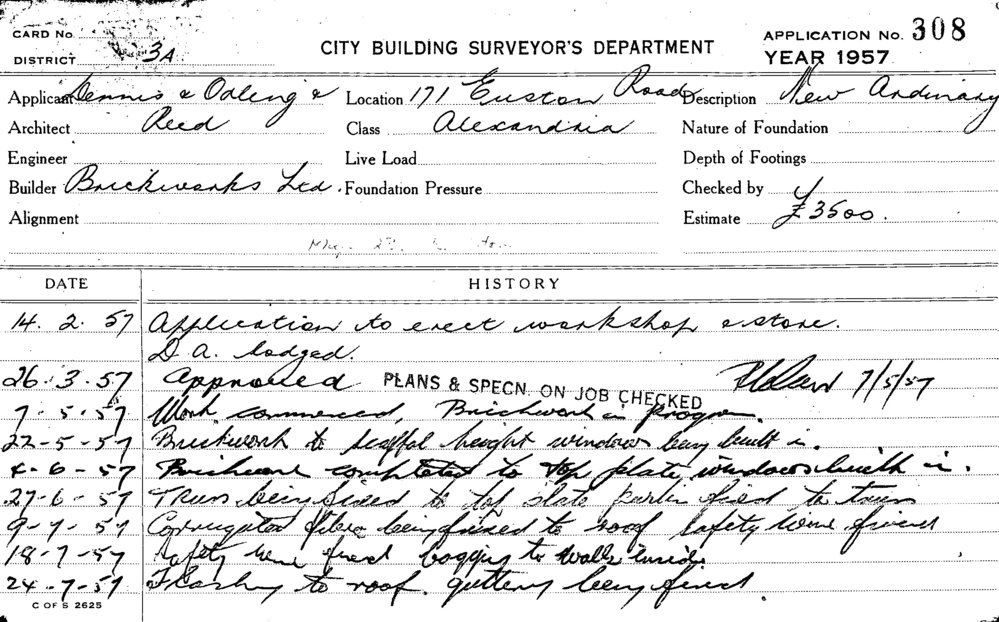 CARD No.
CITY BUILDING SURVEYOR'S DEPARTMENT
APPLICATION No. 308
DISTRICT 3A
YEAR 1957
Applicant Dennis & Odling &
Location 171 Euston Road
Description New Ordinary
Architect Reed
Class Alexandria
Nature of Foundation
Engineer
Live Load
Depth of Footings
Builder Brickworks Ltd.
Foundation Pressure
Checked by
Alignment
Estimate £3500.
DATE HISTORY
14. 2. 57 Application to erect workshop & store.
D A. lodged.
26. 3. 57 Approved PLANS & SPECN. ON JOB CHECKED 7/5/57
7-5-57 Work commenced, Brickwork in progress.
22-5-57 Brickwork to scaffold height windows being built in.
4-6-57 Brickwork completed to top plate, windows built in.
27-6-57 Truss being fixed to top plate purlin fixed to truss
9-7-57 Corrugated fibro being fixed to roof safety wire fixed
18-7-57 Safety wire fixed bagging to walls inside
24-7-57 Flashing to roof. guttering being fixed
C OF S 2625